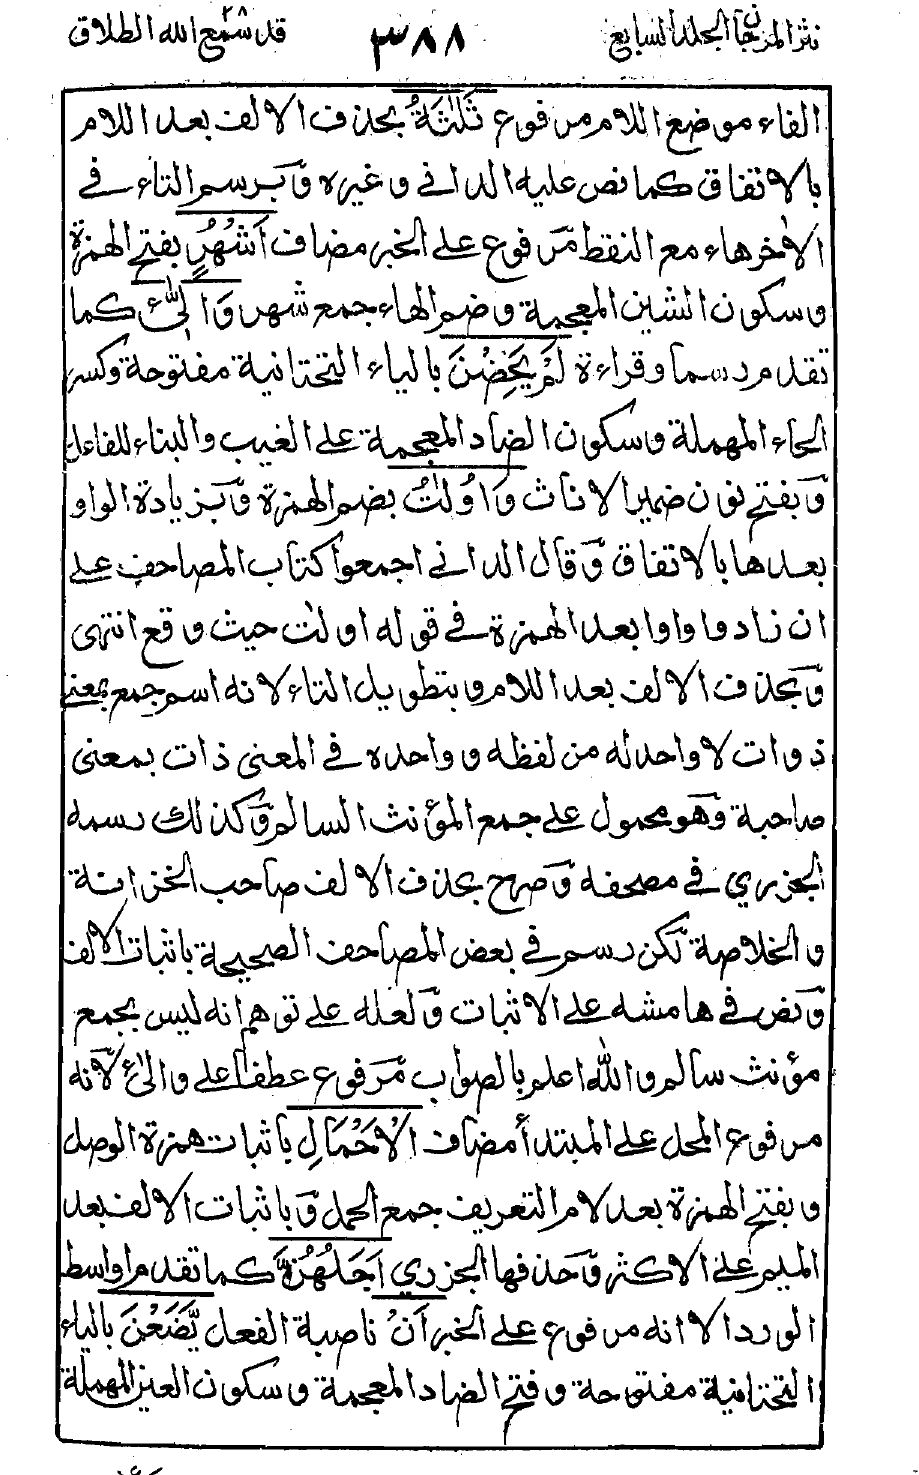 نثر المرجان الجلد السابع ٣٨٨ قد سمع الله ٢٨ الطلاق
الفاء موضع اللام مرفوع ثَلٰثَةُ بحذف الالف بعد اللام
بالاتفاق كما نص عليه الداني وغيره وبرسم التاء في
الاٰخر هاء مع النقط مرفوع على الخبر مضاف اَشْهُرٍ بفتح الهمزة
وسكون الشين المعجمة وضم الهاء جمع شهر وَالّٰئِ كما
تقدم رسما وقراءة لَمْ يَحِضْنَ بالياء التحتانية مفتوحة وكسر
الحاء المهملة وسكون الضاد المعجمة على الغيب والبناء للفاعل
وبفتح نون ضمير الاناث وَاُولَاتُ بضم الهمزة وبزيادة الواو
بعدها بالاتفاق وقال الداني اجمعوا كتاب المصاحف على
ان زادوا واوا بعد الهمزة في قوله اولٰت حيث وقع انتهى
وبحذف الالف بعد اللام وبتطويل التاء لانه اسم جمع بمعنى
ذوات لا واحد له من لفظه وواحده في المعنى ذات بمعنى
صاحبة وهو محمول على جمع المؤنث السالم وكذلك رسمه
الجزري في مصحفه وصرح بحذف الالف صاحب الخزانة
والخلاصة لكن رسم في بعض المصاحف الصحيحة باثبات الالف
ونص في هامشه على الاثبات ولعله على توهم انه ليس بجمع
مؤنث سالم والله اعلم بالصواب مرفوع عطفا على والّٰئ لانه
مرفوع المحل على المبتدأ مضاف الْاَحْمَالِ باثبات همزة الوصل
وبفتح الهمزة بعد لام التعريف جمع الحمل وباثبات الالف بعد
الميم على الاكثر وحذفها الجزري اَجَلُهُنَّ كما تقدم اواسط
الورد الا انه مرفوع على الخبر اَنْ ناصبة الفعل يَّضَعْنَ بالياء
التحتانية مفتوحة وفتح الضاد المعجمة وسكون العين المهملة